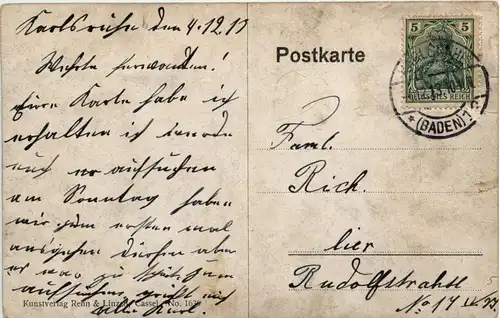 Karlsruhe den 4.12.11
Werte Verwandten!
Eure Karte habe ich
erhalten ich werde
euch er aufsuchen
am Sonntag haben
wir zum ersten mal
ausgehen dürfen aber
er war zu spät zum
aufsuchen grüßt euch
alle Karl.
Kunstverlag Renn & Linzen, Cassel. No.
Postkarte
5 5
DEUTSCHES REICH
*(BADEN)
Faml.
Rich.
hier
Rudolfstraße
No 14 IV